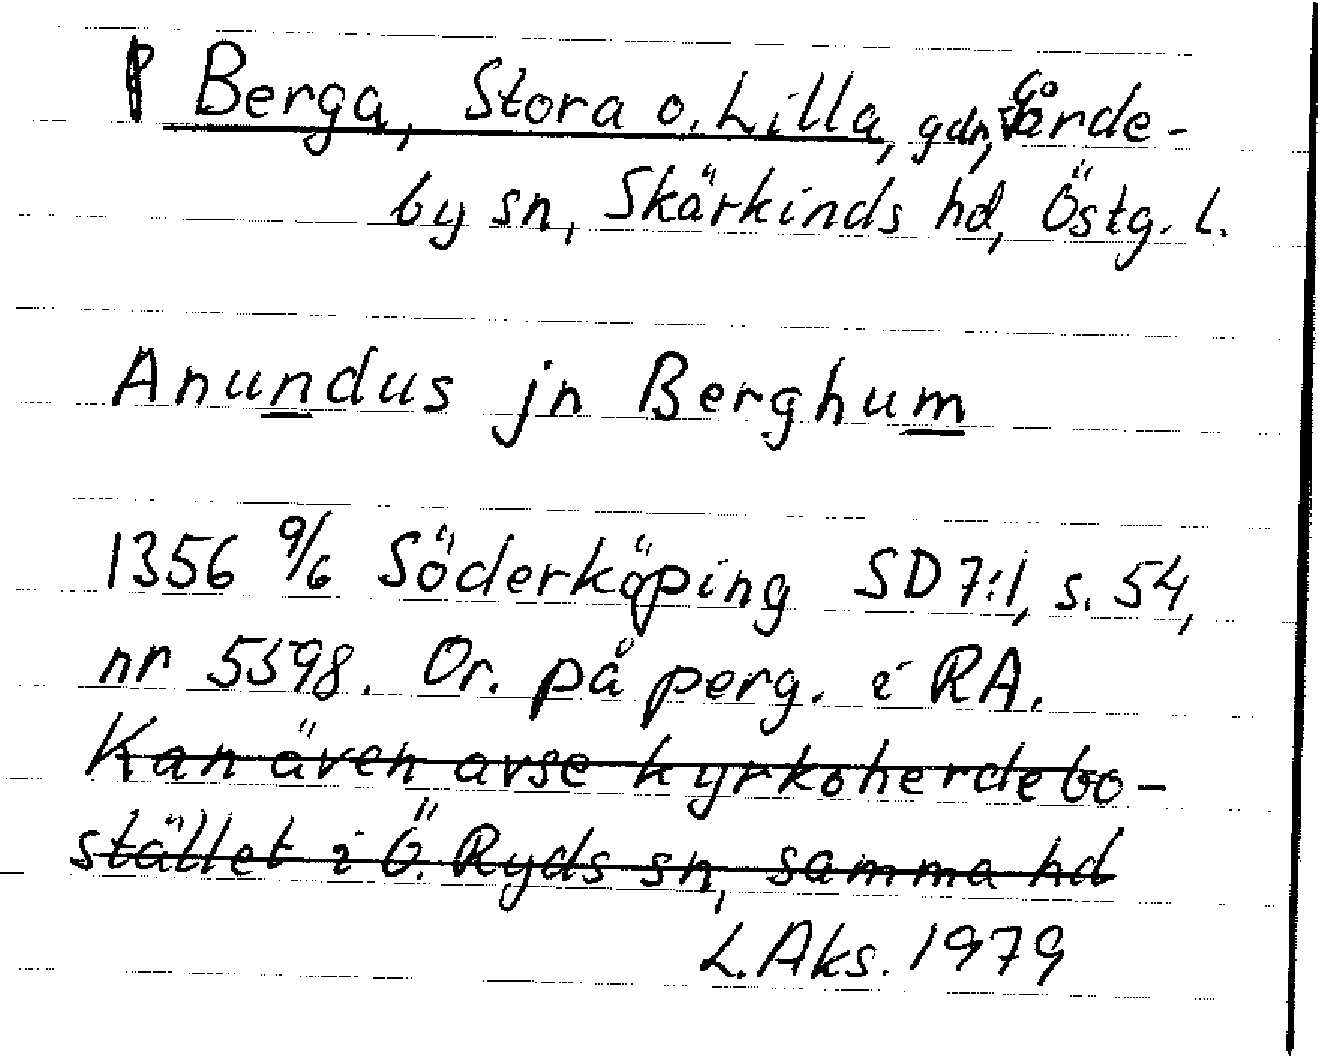 P Berga, Stora o. Lilla, gdr, Gårde-
by sn, Skärkinds hd, Östg. l.
Anundus jn Berghum
1356 9/6 Söderköping SD 7:1, s. 54,
nr 5598. Or. på perg. i RA.
Kan även avse kyrkoherdebo-
stället i Ö. Ryds sn, samma hd
L. Aks. 1979